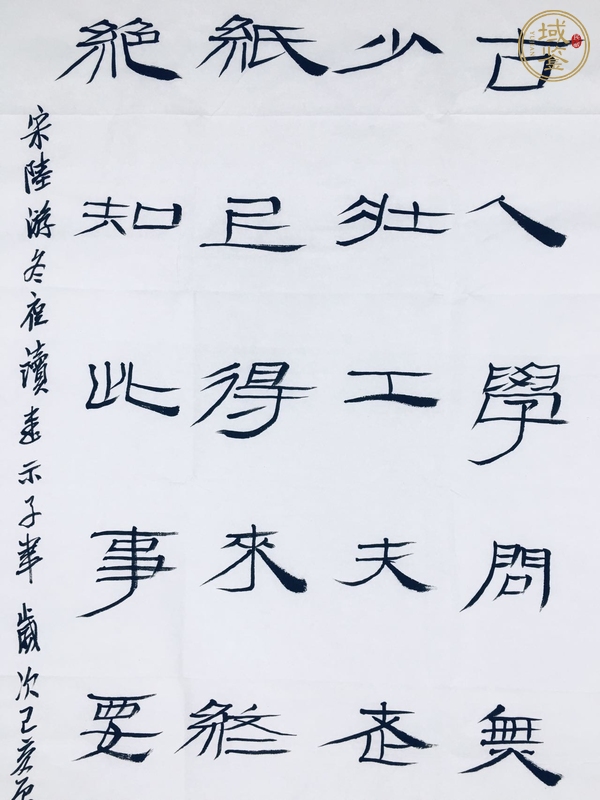 古人學問無
少壯工夫老
紙上得來終
絕知此事要
宋陸游冬夜讀書示子聿 歲次己亥
域鉴